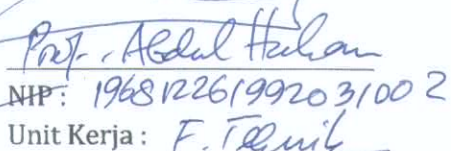 Prof. Abdul Halim
NIP : 196812261992031002
Unit Kerja : F. Teknik